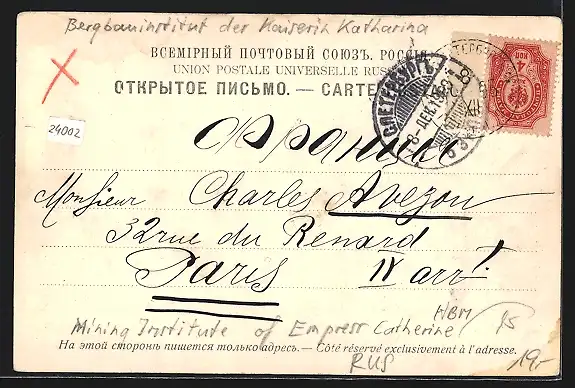 Bergbauinstitut der Kaiserin Katharina
ВСЕМІРНЫЙ ПОЧТОВЫЙ СОЮЗЪ. РОССІЯ
UNION POSTALE UNIVERSELLE RUSS
ОТКРЫТОЕ ПИСЬМО. — CARTE
24002
С.ПЕТЕРБУРГЪ
8-ДЕК.
Monsieur Charles Avezou
32 rue du Renard
Paris IV arrt
Mining Institute of Empress Catherine
HBM
15
На этой сторонѣ пишется только адресъ. — Côté réservé exclusivement à l'adresse.
RUS
19-